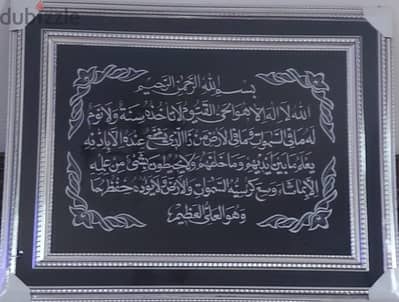 dubizzle
بسم الله الرحمن الرحيم
الله لا اله الا هو الحي القيوم لا تاخذه سنة ولا نوم
له ما في السموات وما في الارض من ذا الذي يشفع عنده الا باذنه
يعلم ما بين ايديهم وما خلفهم ولا يحيطون بشئ من علمه
الا بما شاء وسع كرسيه السموات والارض ولا يؤده حفظهما
وهو العلي العظيم